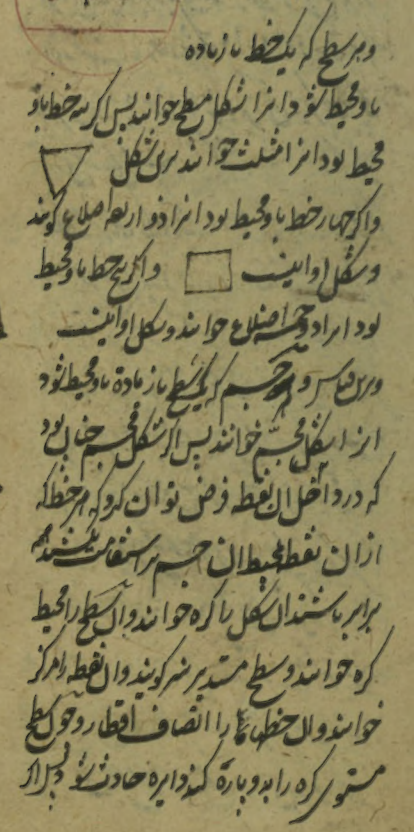 و هر سطح که یک خط یا زیاده
باو محیط شود آنرا شکل مسطح خوانند پس اگر سه خط باو
محیط بود آنرا مثلث خوانند برین شکل
و اگر چهار خط باو محیط بود آنرا ذو اربعه اضلاع گویند
و شکل او اینست و اگر پنج خط باو محیط
بود آنرا ذو خمسه اضلاع خوانند و شکل او اینست
و برین قیاس و هر جسم که یک سطح یا زیاده باو محیط شود
آنرا شکل مجسم خوانند پس اگر شکل مجسم چنان بود
که در داخل آن نقطه فرض توان کرد که هر خط که
از آن نقطه بمحیط آن جسم بر استقامت بکشند همه
برابر باشند آن شکل را کره خوانند و آن سطح را محیط
کره خوانند و سطح مستدیر نیز گویند و آن نقطه را مرکز
خوانند و آن خطها را انصاف اقطار و چون سطح
مستوی کره را بدو پاره کند دایره حادث شود پس اگر